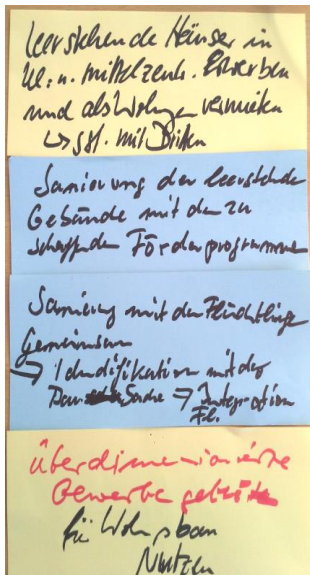 leerstehende Häuser in
kl. u. Mittelzent. Erwerben
und als Wohnungen vermieten
↳ ggf. mit Dritten
Sanierung der leerstehende
Gebäude mit den zu
schaffenden Förderprogrammen
Sanierung mit den Flüchtlingen
Gemeinsam
→ Identifikation mit der
Sache → Integration
Fl.
überdimensionierte
Gewerbegebiete
für Wohnbau
Nutzen